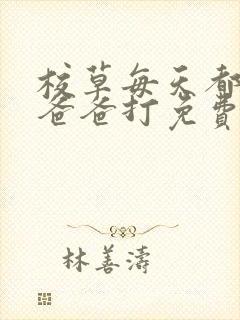 校草每天都
爸爸打免費
林善濤